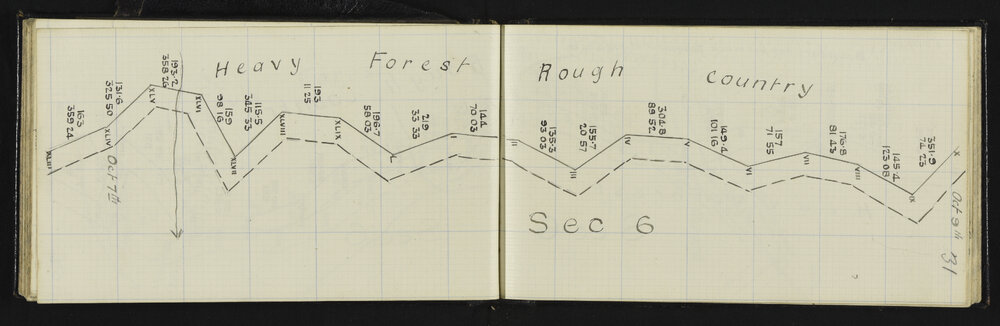 Heavy Forest Rough Country
XLIII
163
359 24
XLIV
131.6
325 50
Oct 7th
XLV
193.2
XLVI
159
98 16
XLVII
115.5
345 33
XLVIII
193
11 25
XLIX
196.7
58 03
L
219
33 33
I
144
70 03
II
135.3
93 03
III
155.7
20 57
IV
304.8
88 52
V
149.4
101 16
VI
157
71 55
VII
176.8
81 43
VIII
145.4
123 08
IX
351.9
74 23
X
Oct 8th 31
Sec 6